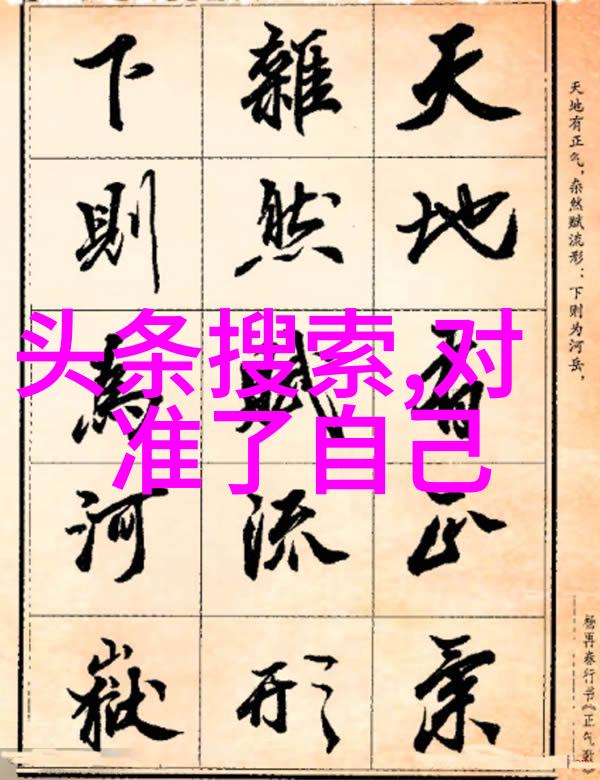 头条搜索,对
准了自己
天地有正气，杂然赋流形：下则为河岳，
天地有正氣
雜然賦流形
下則為河嶽
杨再春行书《正气歌》